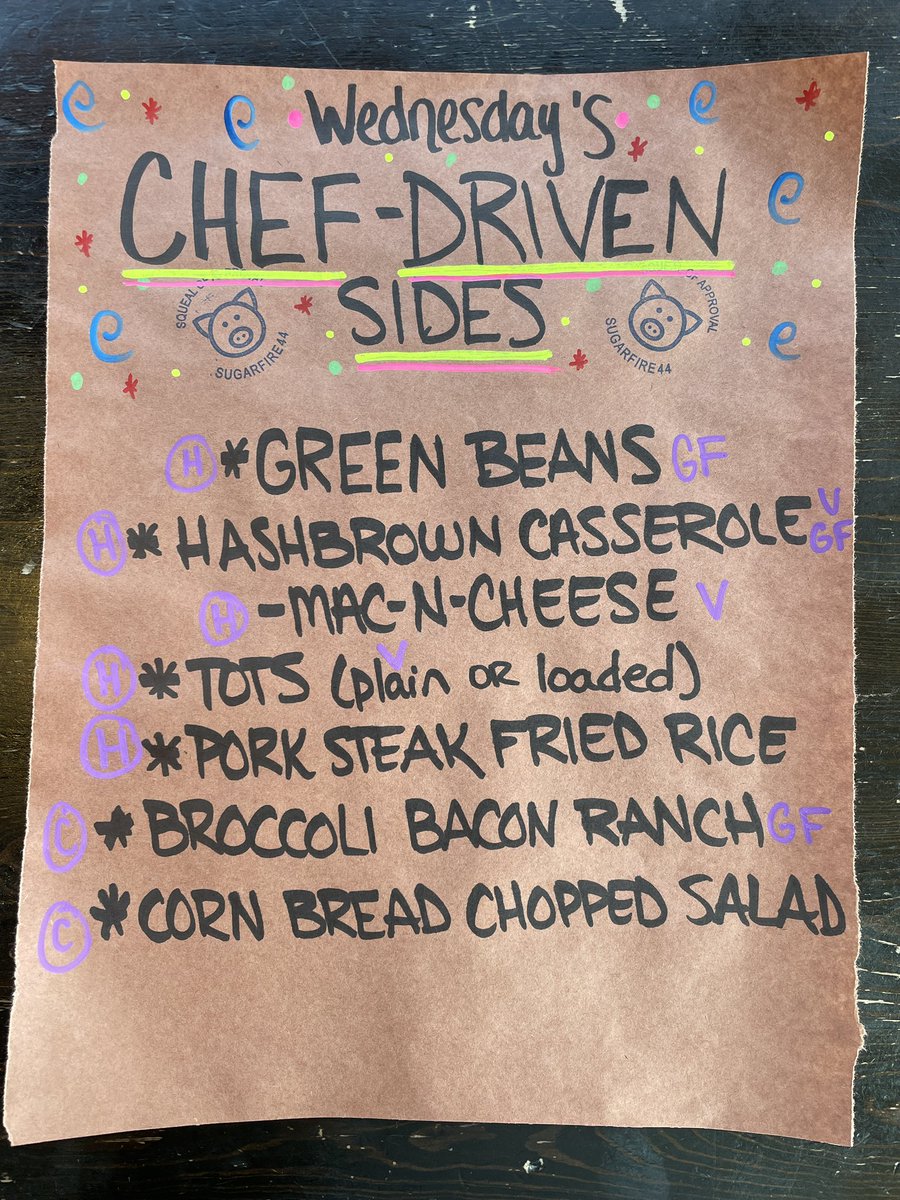 Wednesday's
CHEF-DRIVEN
SIDES
SQUEAL
SUGARFIRE44
OF APPROVAL
SUGARFIRE44
H *GREEN BEANS GF
H * HASHBROWN CASSEROLE V GF
H -MAC-N-CHEESE V
H *TOTS (plain OR loaded) V
H *PORK STEAK FRIED RICE
C * BROCCOLI BACON RANCH GF
C *CORN BREAD CHOPPED SALAD